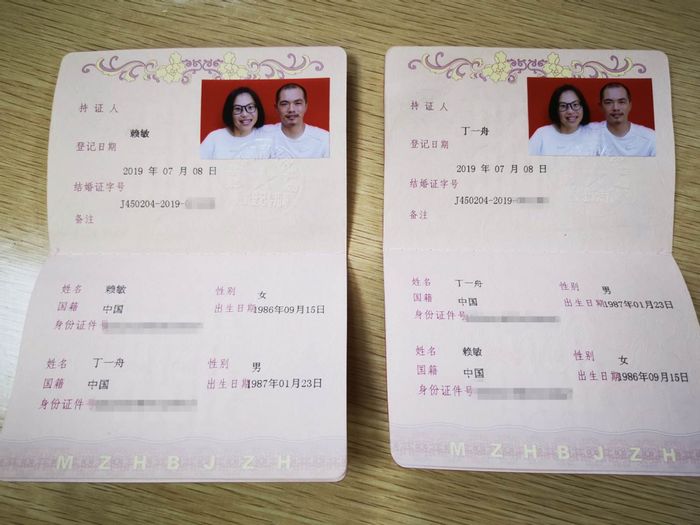 持证人
赖敏
登记日期
2019 年 07 月 08 日
结婚证字号
J450204-2019-
备注
姓名 赖敏 性别 女
国籍 中国 出生日期 1986年09月15日
身份证件号
姓名 丁一舟 性别 男
国籍 中国 出生日期 1987年01月23日
身份证件号
M Z H B J Z H
持证人
丁一舟
登记日期
2019 年 07 月 08 日
结婚证字号
J450204-2019-
备注
姓名 丁一舟 性别 男
国籍 中国 出生日期 1987年01月23日
身份证件号
姓名 赖敏 性别 女
国籍 中国 出生日期 1986年09月15日
身份证件号
M Z H B J Z H